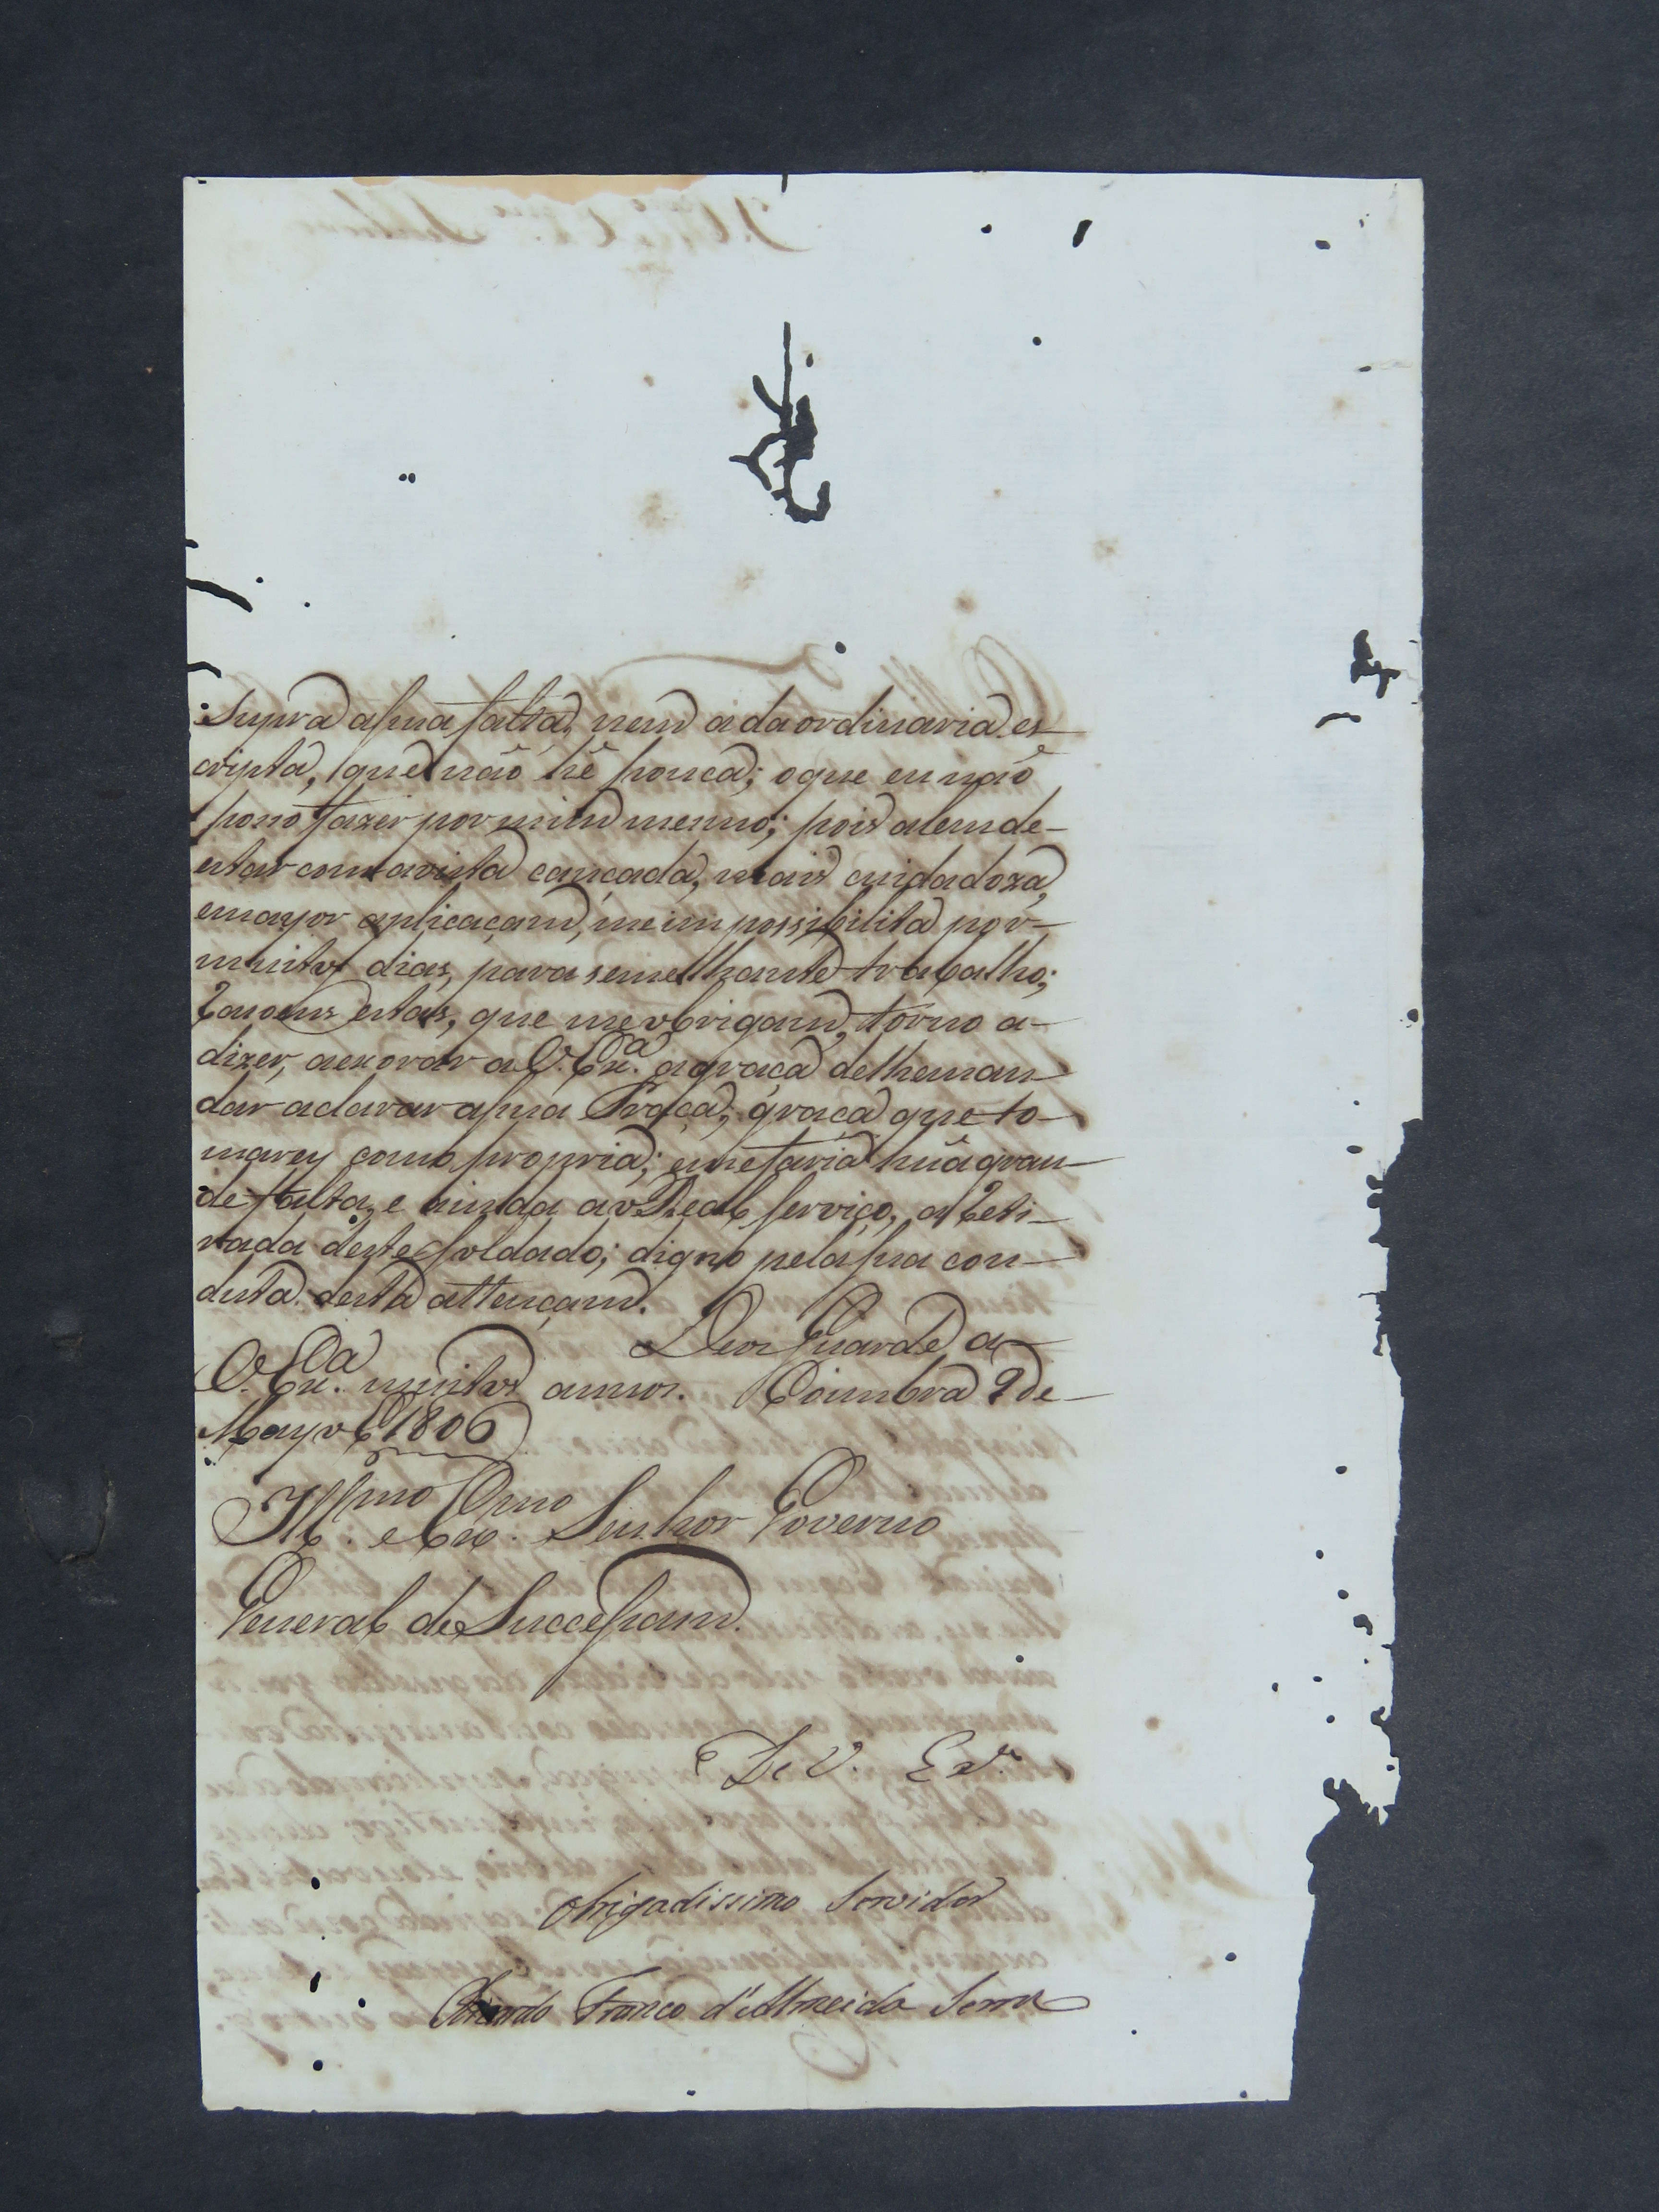 Supra a sua falta, nem a da ordinaria es
cripta, que não hé pouca; o que eu não
posso fazer por mim mesmo; pois alem de
estar com a vista cançada, mais cuidadoza,
e mayor aplicaçam, me impossibilita por
muitos dias, para semelhante trabalho;
razoens estas, que me obrigam, torno a
dizer, a exorar a V. Exa. a graça de lhe man
dar aclarar a sua Praça; graça que to
marey como propria; e me faria hũa gran
de falta, e ainda ao Real serviço, a reti
rada deste soldado; digno pela sua con
duta desta attençam.
Deos Guarde a
V. Exa. muitos annos. Coimbra 2 de
Mayo 1806
Illmo. e Exmo. Senhor Governo
General de Successam.
De V. Exa.
obrigadissimo Servidor
Ricardo Franco d'Almeida Serra